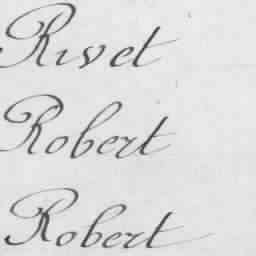 Rivet
Robert
Robert